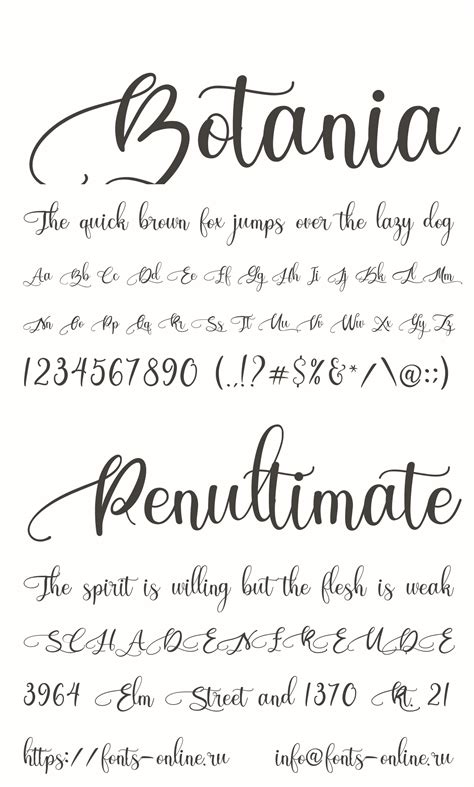 Botania
The quick brown fox jumps over the lazy dog
Aa Bb Cc Dd Ee Ff Gg Hh Ii Jj Kk Ll Mm
Nn Oo Pp Qq Rr Ss Tt Uu Vv Ww Xx Yy Zz
1234567890 (.,!?#$%&*/\@:;)
Penultimate
The spirit is willing but the flesh is weak
SCHADENFREUDE
3964 Elm Street and 1370 Rt. 21
https://fonts-online.ru info@fonts-online.ru